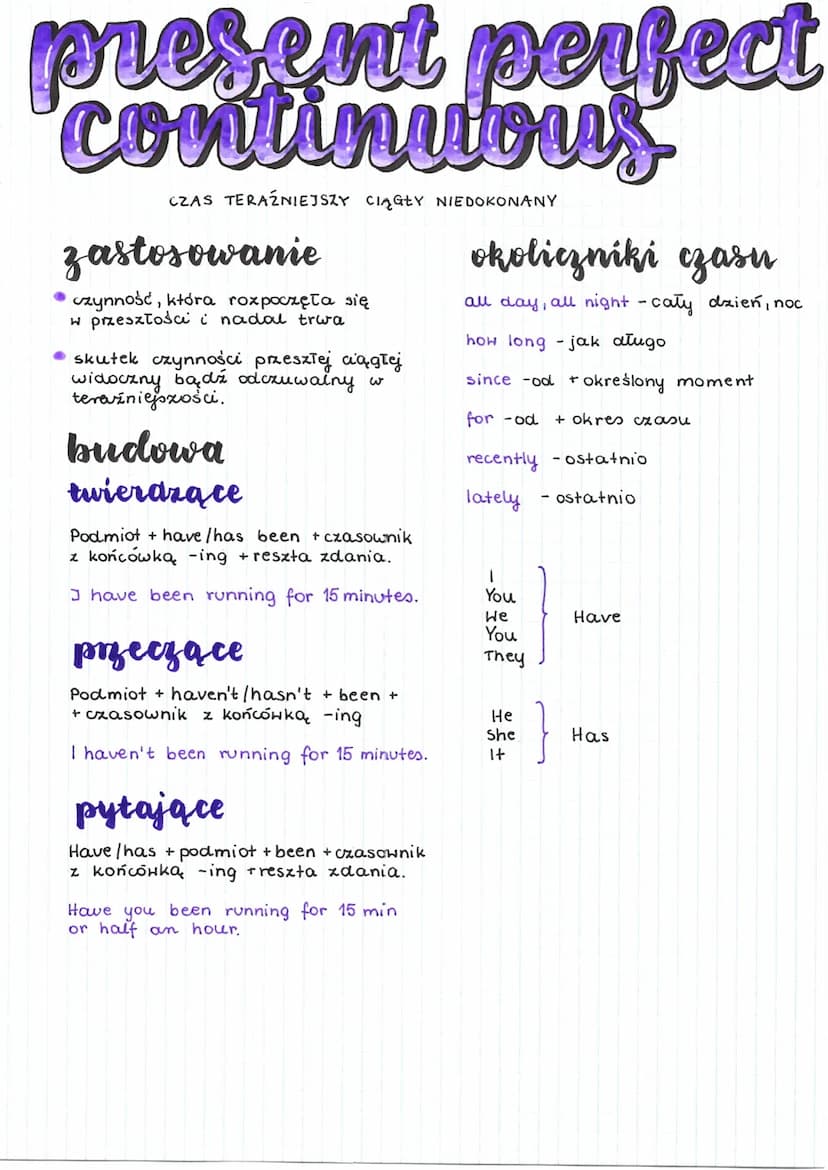 present perfect
continuous
CZAS TERAŹNIEJSZY CIĄGŁY NIEDOKONANY
zastosowanie
czynność, która rozpoczęła się
w przeszłości i nadal trwa
skutek czynności przeszłej ciągłej
widoczny bądź odczuwalny w
teraźniejszości.
budowa
twierdzące
Podmiot + have/has been + czasownik
z końcówką -ing + reszta zdania.
I have been running for 15 minutes.
przeczące
Podmiot + haven't/hasn't + been +
+ czasownik z końcówką -ing
I haven't been running for 15 minutes.
pytające
Have/has + podmiot + been + czasownik
z końcówką -ing + reszta zdania.
Have you been running for 15 min
or half an hour.
okoliczniki czasu
all day, all night - cały dzień, noc
how long - jak długo
since - od + określony moment
for - od + okres czasu
recently - ostatnio
lately - ostatnio
I
You
We
You
They
Have
He
She
It
Has